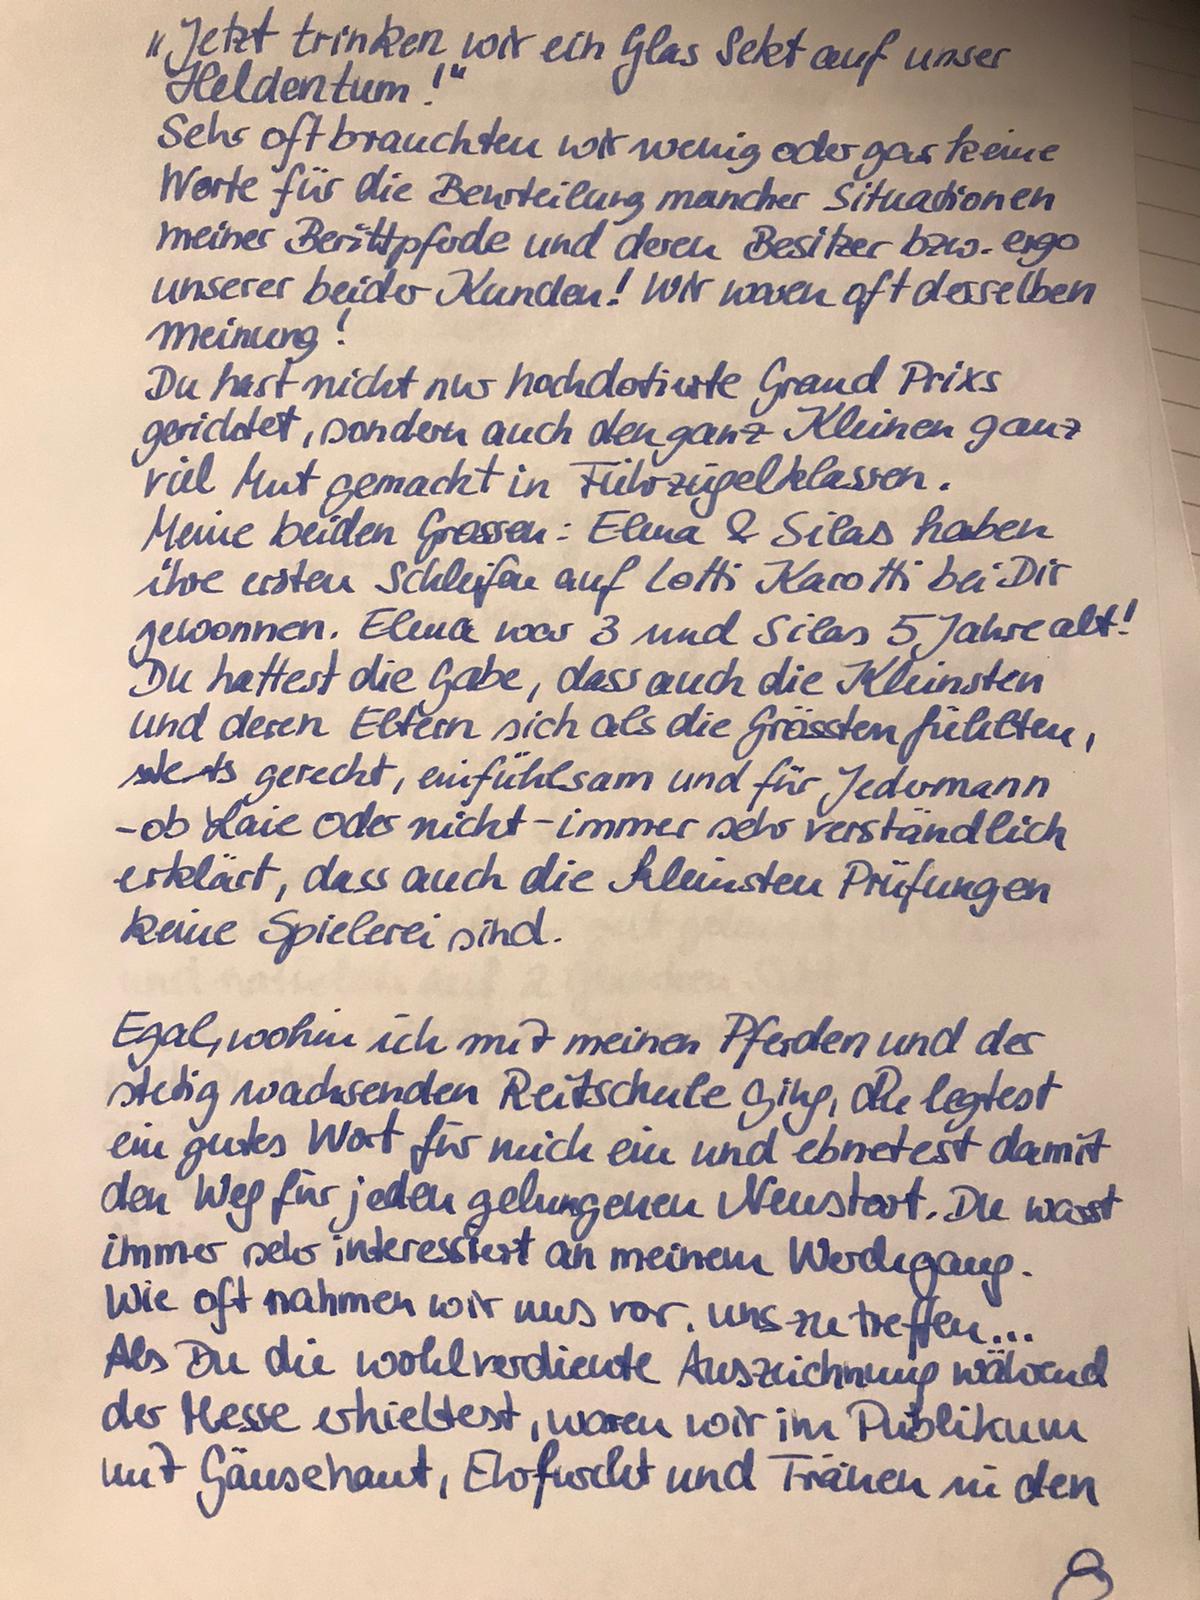 „Jetzt trinken wir ein Glas Sekt auf unser
Heldentum!“
Sehr oft brauchten wir wenig oder gar keine
Worte für die Beurteilung mancher Situationen
meiner Berittpferde und deren Besitzer bzw. ergo
unserer beider Kunden! Wir waren oft derselben
Meinung!
Du hast nicht nur hochdotierte Grand Prixs
gerichtet, sondern auch den ganz Kleinen ganz
viel Mut gemacht in Führzügelklassen.
Meine beiden Grossen: Elena & Silas haben
ihre ersten Schleifen auf Lotti Karotti bei Dir
gewonnen. Elena war 3 und Silas 5 Jahre alt!
Du hattest die Gabe, dass auch die Kleinsten
und deren Eltern sich als die Grössten fühlten,
stets gerecht, einfühlsam und für Jedermann
- ob Laie oder nicht - immer sehr verständlich
erklärt, dass auch die kleinsten Prüfungen
keine Spielerei sind.
Egal, wohin ich mit meinen Pferden und der
stetig wachsenden Reitschule ging, Du legtest
ein gutes Wort für mich ein und ebnetest damit
den Weg für jeden gelungenen Neustart. Du warst
immer sehr interessiert an meinem Werdegang.
Wie oft nahmen wir uns vor, uns zu treffen...
Als Du die wohlverdiente Auszeichnung während
der Messe erhieltest, waren wir im Publikum
mit Gänsehaut, Ehrfurcht und Tränen in den
8